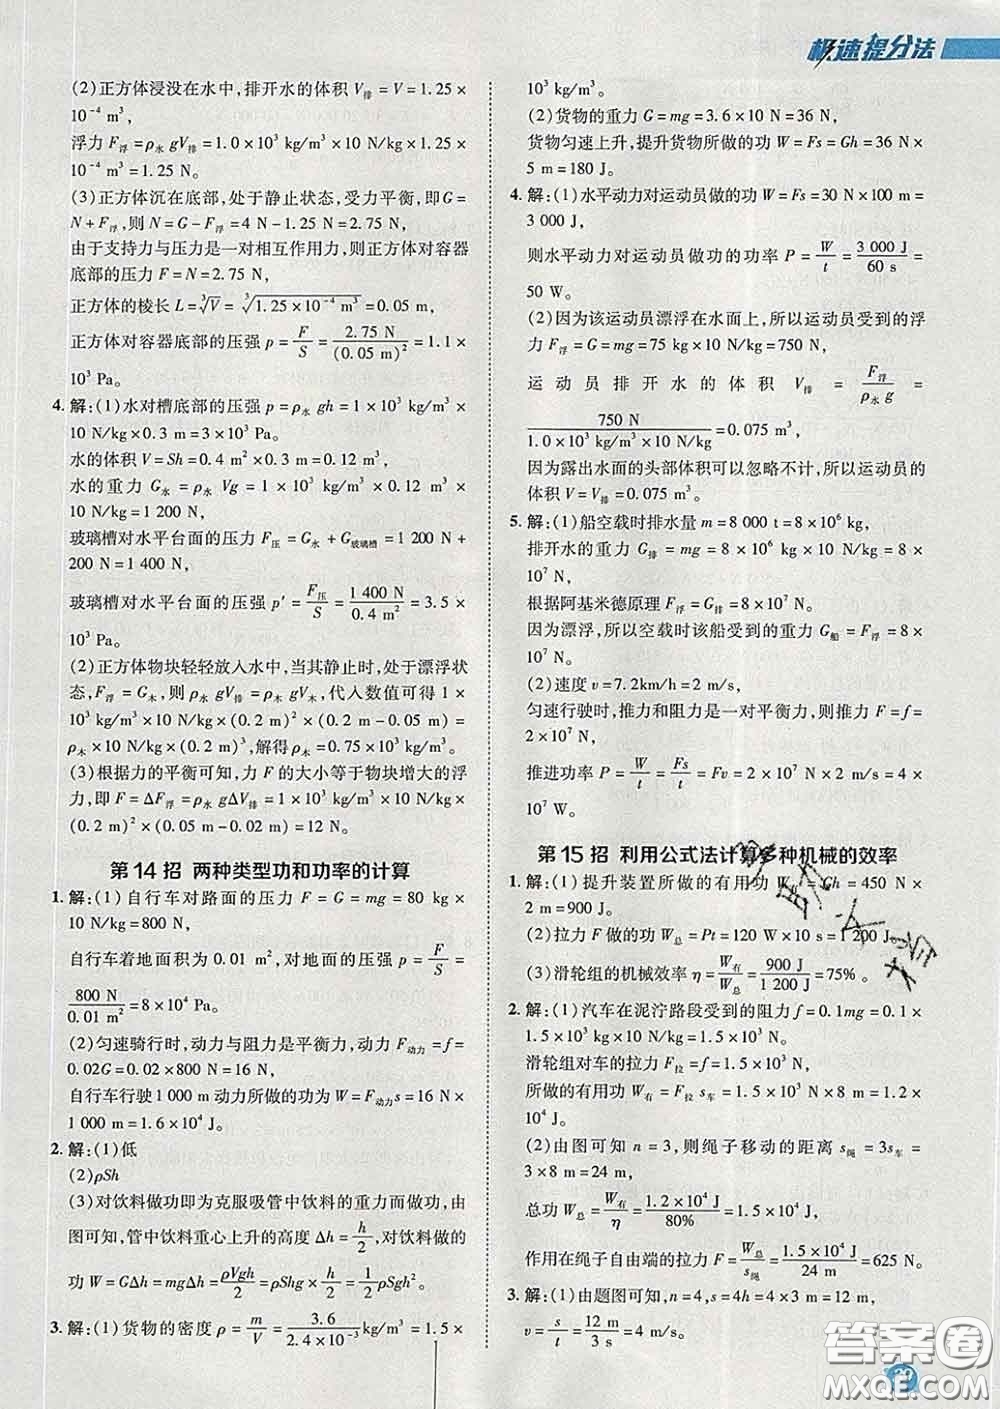 极速提分法
(2)正方体浸没在水中,排开水的体积 V排=V=1.25×
10⁻⁴ m³,
浮力 F浮=ρ水 gV排=1.0×10³ kg/m³×10 N/kg×1.25×
10⁻⁴ m³=1.25 N。
(3)正方体沉在底部,处于静止状态,受力平衡,即G=
N+F浮,则 N=G-F浮=4 N-1.25 N=2.75 N,
由于支持力与压力是一对相互作用力,则正方体对容器
底部的压力 F=N=2.75 N,
正方体的棱长 L=∛V=∛(1.25×10⁻⁴ m³)=0.05 m,
正方体对容器底部的压强 p=F/S=2.75 N/(0.05 m)²=1.1×
10³ Pa。
4. 解:(1)水对槽底部的压强 p=ρ水 gh=1×10³ kg/m³×
10 N/kg×0.3 m=3×10³ Pa。
水的体积 V=Sh=0.4 m²×0.3 m=0.12 m³,
水的重力 G水=ρ水 Vg=1×10³ kg/m³×0.12 m³×
10 N/kg=1 200 N,
玻璃槽对水平台面的压力 F压=G水+G玻璃槽=1 200 N+
200 N=1 400 N,
玻璃槽对水平台面的压强 p′=F压/S=1 400 N/0.4 m²=3.5×
10³ Pa。
(2)正方体物块轻轻放入水中,当其静止时,处于漂浮状
态,F浮=G木,则 ρ水 gV排=ρ木 gV木,代入数值可得 1×
10³ kg/m³×10 N/kg×(0.2 m)²×(0.2 m-0.05 m)=
ρ木×10 N/kg×(0.2 m)³,解得ρ木=0.75×10³ kg/m³。
(3)根据力的平衡可知,力 F 的大小等于物块增大的浮
力,即 F=ΔF浮=ρ水 gΔV排=1×10³ kg/m³×10 N/kg×
(0.2 m)²×(0.2 m-0.05 m-0.02 m)=12 N。
第14招 两种类型功和功率的计算
1. 解:(1)自行车对路面的压力 F=G=mg=80 kg
×10 N/kg=800 N,
自行车着地面积为 0.01 m²,对地面的压强 p=F/S
=800 N/0.01 m²=8×10⁴ Pa。
(2)匀速骑行时,动力与阻力是平衡力,动力 F动力=f=
0.02G=0.02×800 N=16 N,
自行车行驶 1 000 m 动力所做的功 W=F动力s=16 N×
1 000 m=1.6×10⁴ J。
2. 解:(1)低
(2)ρSh
(3)对饮料做功即为克服吸管中饮料的重力而做功,由
图可知,管中饮料重心上升的高度 Δh=h/2,对饮料做的
功 W=GΔh=mgΔh=ρVgh/2=ρShg×h/2=ρSgh²/2。
3. 解:(1)货物的密度 ρ=m/V=3.6/(2.4×10⁻³) kg/m³=1.5×
10³ kg/m³。
(2)货物的重力 G=mg=3.6×10 N=36 N,
货物匀速上升,提升货物所做的功 W=Fs=Gh=36 N×
5 m=180 J。
4. 解:(1)水平动力对运动员做的功 W=Fs=30 N×100 m=
3 000 J,
则水平动力对运动员做功的功率 P=W/t=3 000 J/60 s=
50 W。
(2)因为该运动员漂浮在水面上,所以运动员受到的浮
力 F浮=G=mg=75 kg×10 N/kg=750 N,
运动员排开水的体积 V排=F浮/ρ水 g=
750 N/(1.0×10³ kg/m³×10 N/kg)=0.075 m³,
因为露出水面的头部体积可以忽略不计,所以运动员的
体积 V=V排=0.075 m³。
5. 解:(1)船空载时排水量 m=8 000 t=8×10⁶ kg,
排开水的重力 G排=mg=8×10⁶ kg×10 N/kg=8×
10⁷ N,
根据阿基米德原理 F浮=G排=8×10⁷ N,
因为漂浮,所以空载时该船受到的重力 G船=F浮=8×
10⁷ N。
(2)速度 v=7.2km/h=2 m/s,
匀速行驶时,推力和阻力是一对平衡力,则推力 F=f=
2×10⁷ N,
推进功率 P=W/t=Fs/t=Fv=2×10⁷ N×2 m/s=4×
10⁷ W。
第15招 利用公式法计算多种机械的效率
1. 解:(1)提升装置所做的有用功 W有=Gh=450 N
×2 m=900 J。
(2)拉力 F 做的功 W总=Pt=120 W×10 s=1 200 J。
(3)滑轮组的机械效率 η=W有/W总=900 J/1 200 J=75%。
2. 解:(1)汽车在泥泞路段受到的阻力 f=0.1mg=0.1×
1.5×10³ kg×10 N/kg=1.5×10³ N,
滑轮组对车的拉力 F拉=f=1.5×10³ N,
所做的有用功 W有=F拉 s车=1.5×10³ N×8 m=1.2×
10⁴ J。
(2)由图可知 n=3,则绳子移动的距离 s绳=3s车=
3×8 m=24 m,
总功 W总=W有/η=1.2×10⁴ J/80%=1.5×10⁴ J,
作用在绳子自由端的拉力 F=W总/s绳=1.5×10⁴ J/24 m=625 N。
3. 解:(1)由题图可知,n=4,s=4h=4×3 m=12 m,
v=s/t=12 m/3 s=4 m/s。
答案圈
MXQE.COM